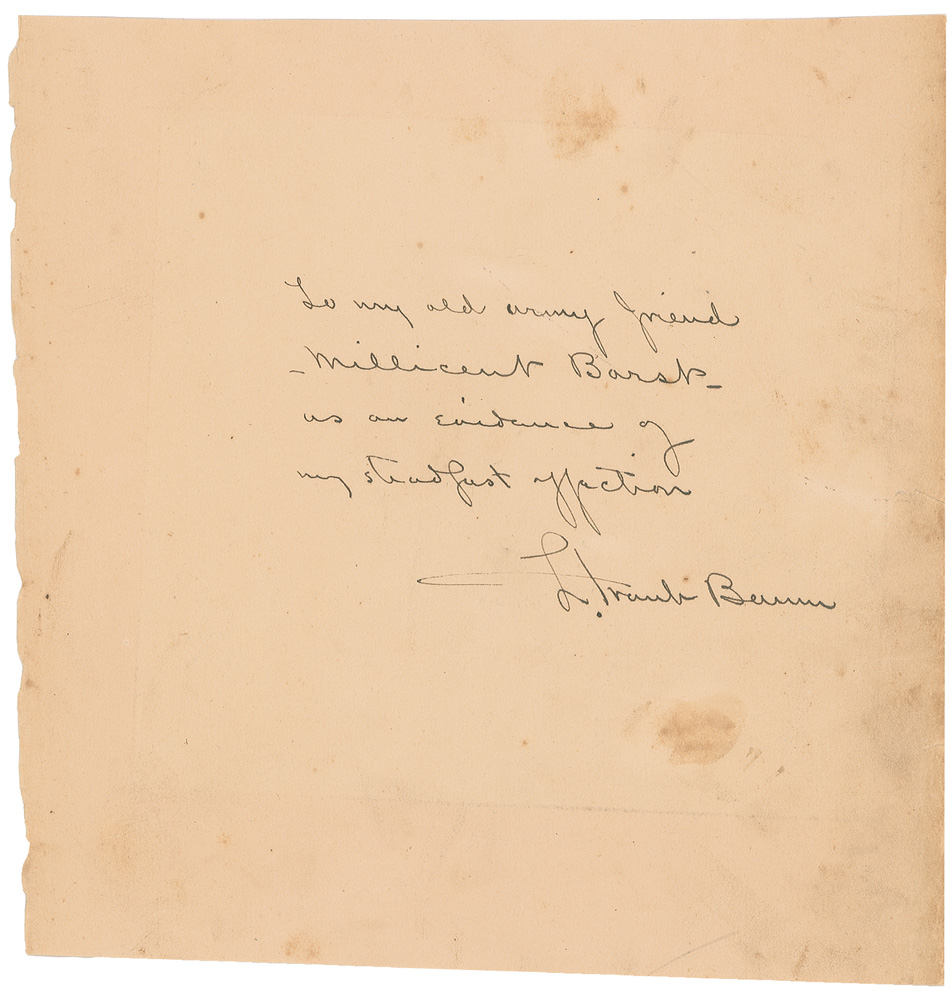 To my old army friend
- Millicent Borst -
as an evidence of
my steadfast affection
L. Frank Baum